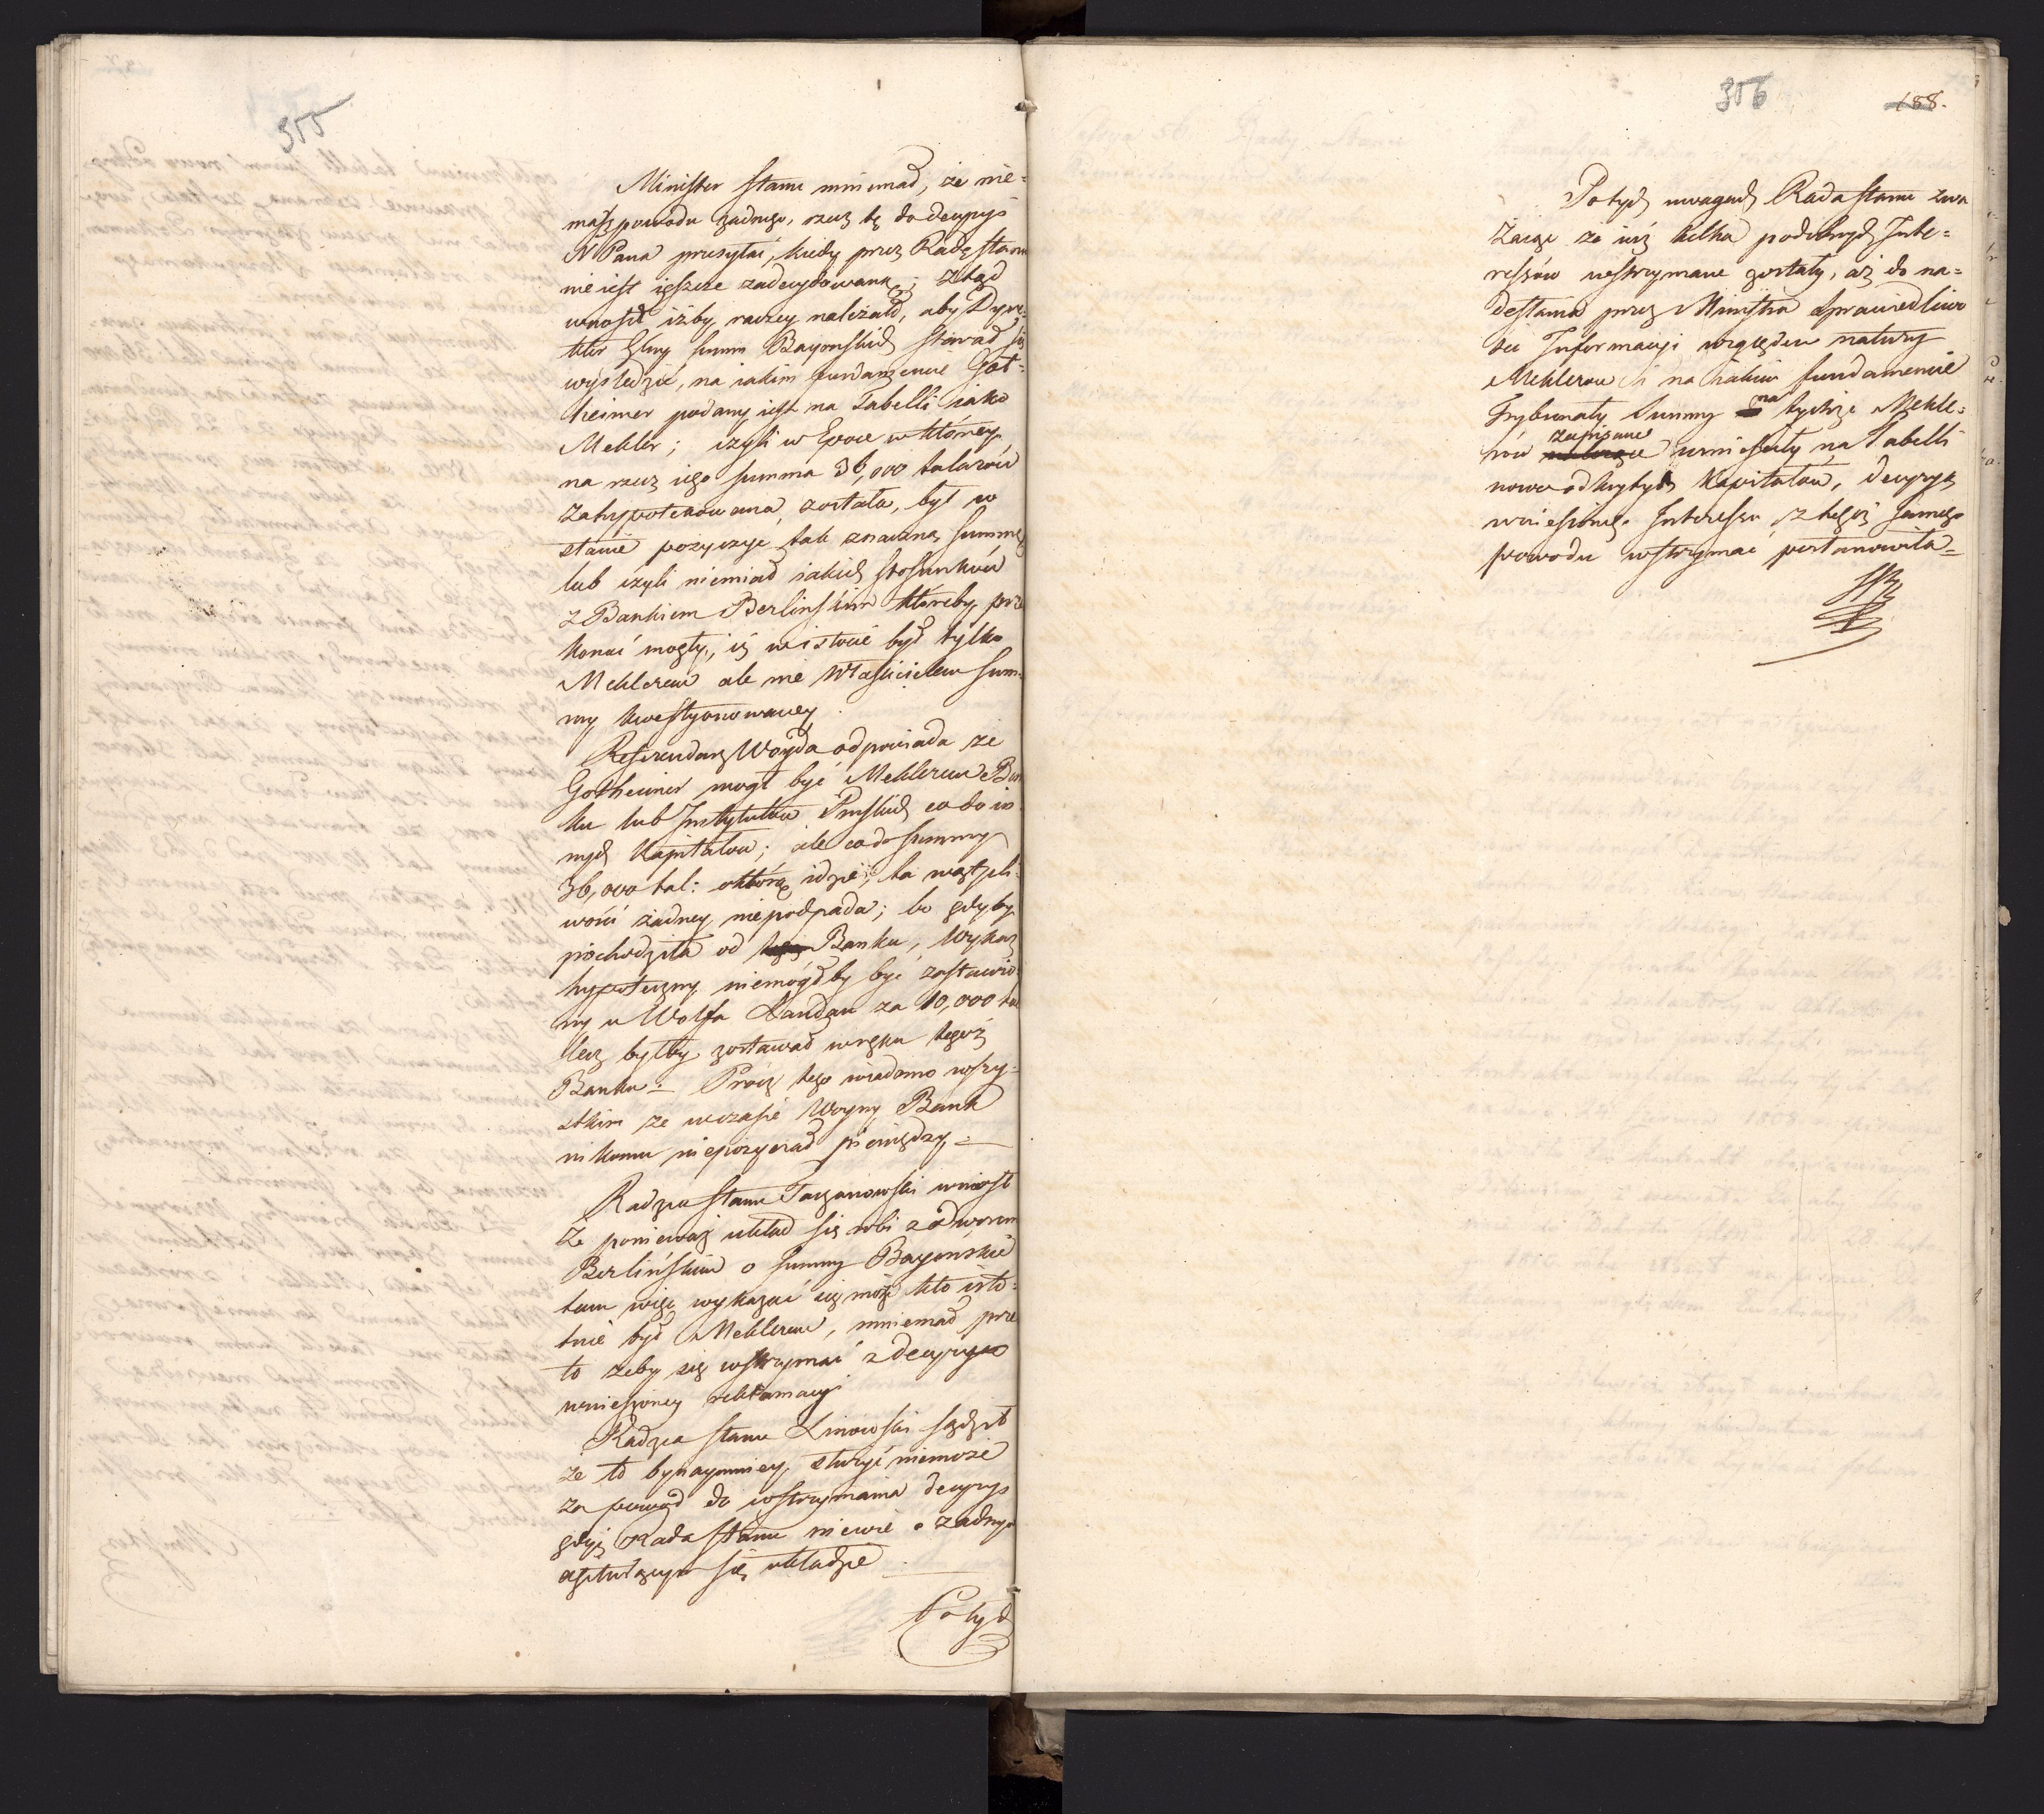 355
Minister stanu mniemał, że nie=
masz powodu żadnego, rzecz tę do decyzyi
N Pana przesyłać, kiedy przez Radę stanu
nie iest ieszcze zadecydowaną; ztąd
wnosił iżby raczey należało, aby Dyre=
ktor Gł̃ny Summ Bayonskich starał się
wyśledzić, na iakim fundamencie Got=
heimer podany iest na Tabelli iako
Mekler; czyli w Epoce w którey
na rzecz iego summa 36,000 talarów
zahypotekowana została, był w
stanie pożyczyć tak znaczną summę
lub czyli niemiał iakich stosunków
z Bankiem Berlinskim któreby prze
konać mogły, iż w istocie był tylko
Meklerem ale nie Właścicielem sum=
my kwestyonowaney.
Referendarz Woyda odpowiada że
Gotheimer mogł być Meklerem Ban
ku lub Instytutów Pruskich co do in
nych Kapitałów; ale co do summy
36,000 tal: o którą idzie, ta wątpli=
wości żadney niepodpada; bo gdyby
pochodziła od Banku, Wykaz
hypoteczny niemógłby być zastawio
ny u Wolfa Landau za 10,000 tal
lecz byłby zostawał w ręku tegoż
Banku.= Prócz tego wiadomo wszy=
stkim że w czasie Woyny Bank
nikomu niepożyczał pieniędzy.=
Radzca stanu Taczanowski wniosł
że ponieważ układ się robi z dworem
Berlińskim o summy Bayonskie
tam więc wykazać się może kto isto=
tnie był Meklerem, mniemał prze
to żeby się wstrzymać z decyzyą
wniesioney reklamacyi
Radzca stanu Linowski sądził
że to bynaymniey służyć niemoże
za powód do wstrzymania decyzyi
gdyż Rada stanu niewie o żadnym
agituiącym się układzie.
Po tych
356
188.
Po tych uwagach Rada stanu zwa
żaiąc że iuż kilka podobnych Inte=
ressów wstrzymane zostały, aż do na=
desłania przez Ministra Sprawiedliwo
ści Informacyi względem natury
Meklerow i na iakim fundamencie
Trybunały Summy na tychże Mekle=
rów zapisane umieściły na Tabelli
nowo odkrytych Kapitałów, decyzyę
wniesionego Interessu z tegoż samego
powodu wstrzymać postanowiła=